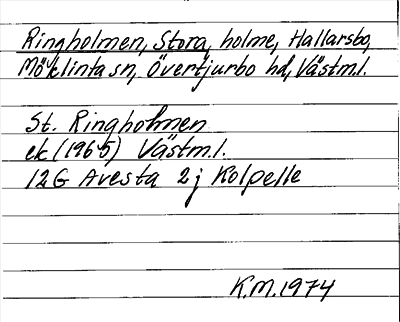 Ringholmen, Stora, holme, Hallarsbo,
Möklinta sn, Övertjurbo hd, Västml.
St. Ringholmen
ek (1965) Västml.
12G Avesta 2j Kolpelle
K.M. 1974